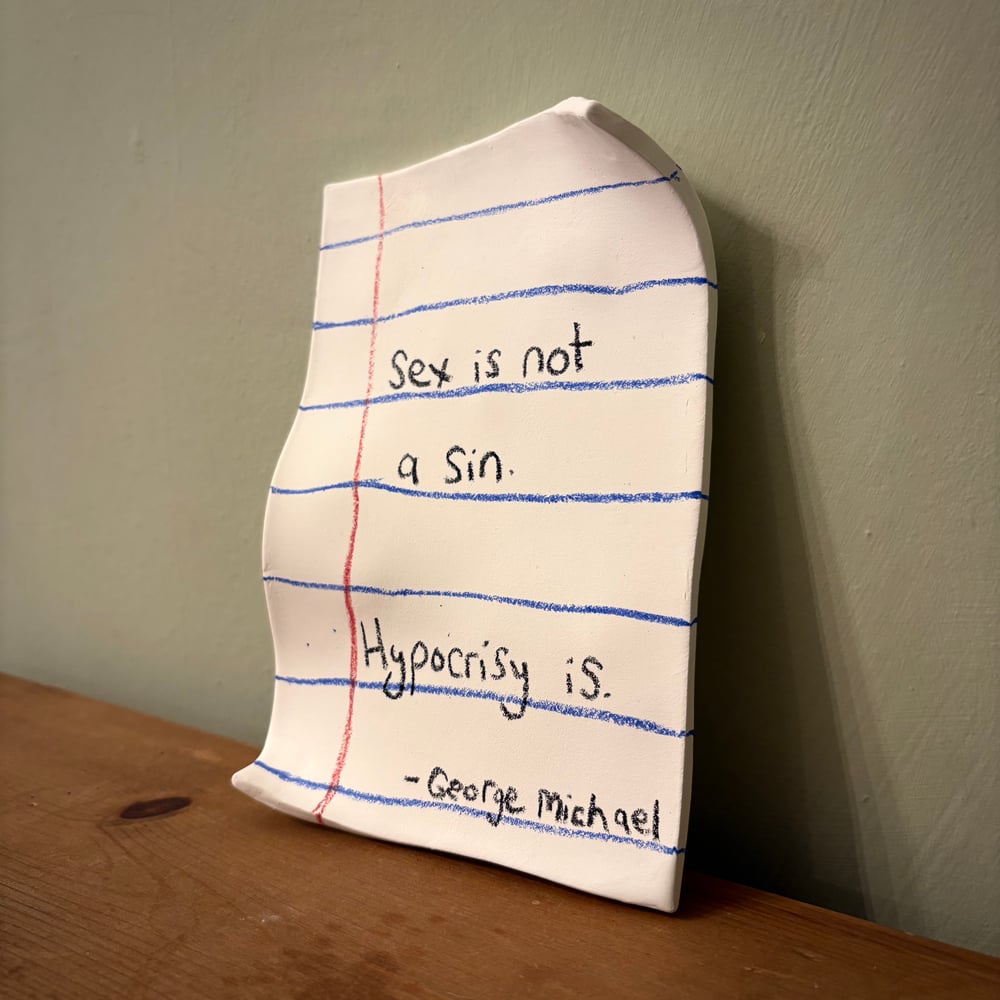 Sex is not
a sin.
Hypocrisy is.
- George Michael